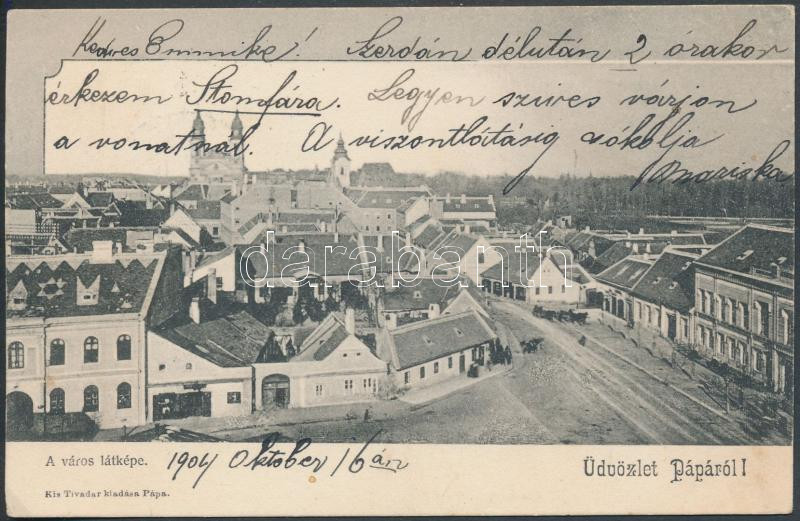 Kedves Emmike! Szerdán délután 2 órakor
érkezem Stomfára. Legyen szives várjon
a vonatnál. A viszontlátásig csókolja
Mariska
darabanth.com
A város látképe. 1904 Oktober 16án
Üdvözlet Pápáról!
Kis Tivadar kiadása Pápa.